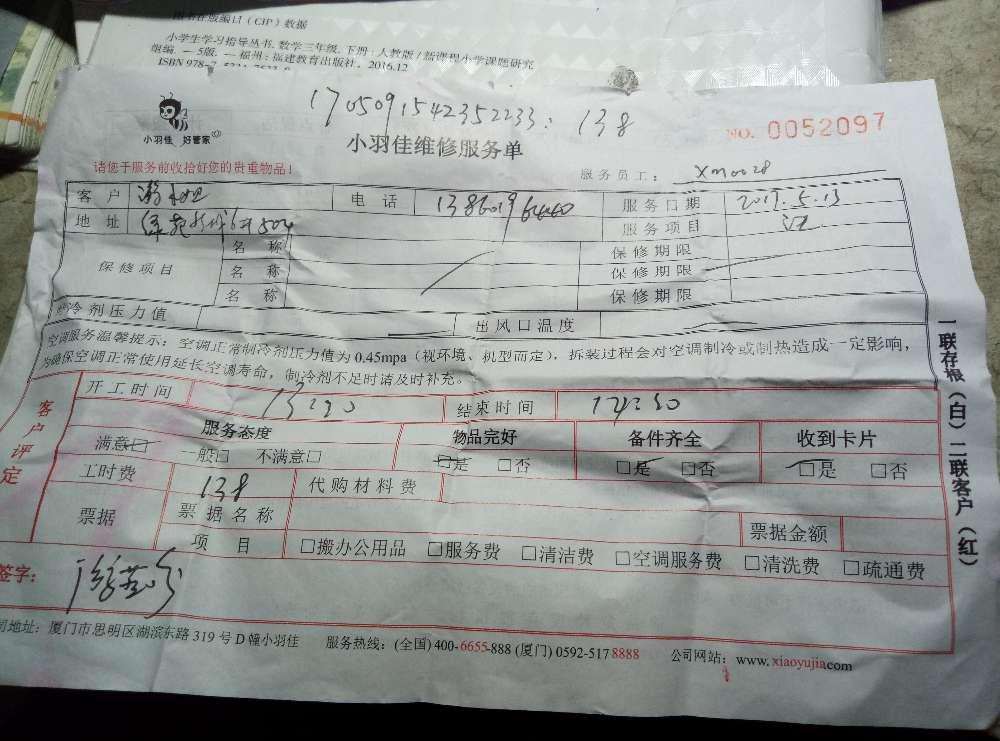 图书在版编目（CIP）数据
小学生学习指导丛书.数学三年级.下册：人教版/新课程小学课题研究
组编. —5版. —福州：福建教育出版社，2016.12
ISBN 978-7-
1705091542352233: 138
小羽佳 好管家
小羽佳维修服务单
NO. 0052097
请您于服务前收拾好您的贵重物品！
服务员工： XM0028
客户 电话 服务日期 2017.5.13
地址 504 服务项目
保修项目 名称 保修期限
名称 保修期限
名称 保修期限
冷剂压力值 出风口温度
空调服务温馨提示：空调正常制冷剂压力值为0.45mpa（视环境、机型而定），拆装过程会对空调制冷或制热造成一定影响，
为确保空调正常使用延长空调寿命，制冷剂不足时请及时补充。
一联存根（白）二联客户（红）
客户评定
开工时间 结束时间
服务态度 物品完好 备件齐全 收到卡片
满意□ 一般□ 不满意□ □是 □否 □是 □否 □是 □否
工时费 138 代购材料费
票据 票据名称 票据金额
项目 □搬办公用品 □服务费 □清洁费 □空调服务费 □清洗费 □疏通费
签字：
司地址：厦门市思明区湖滨东路319号D幢小羽佳 服务热线：(全国)400-6655-888 (厦门) 0592-517 8888 公司网站：www.xiaoyujia.com